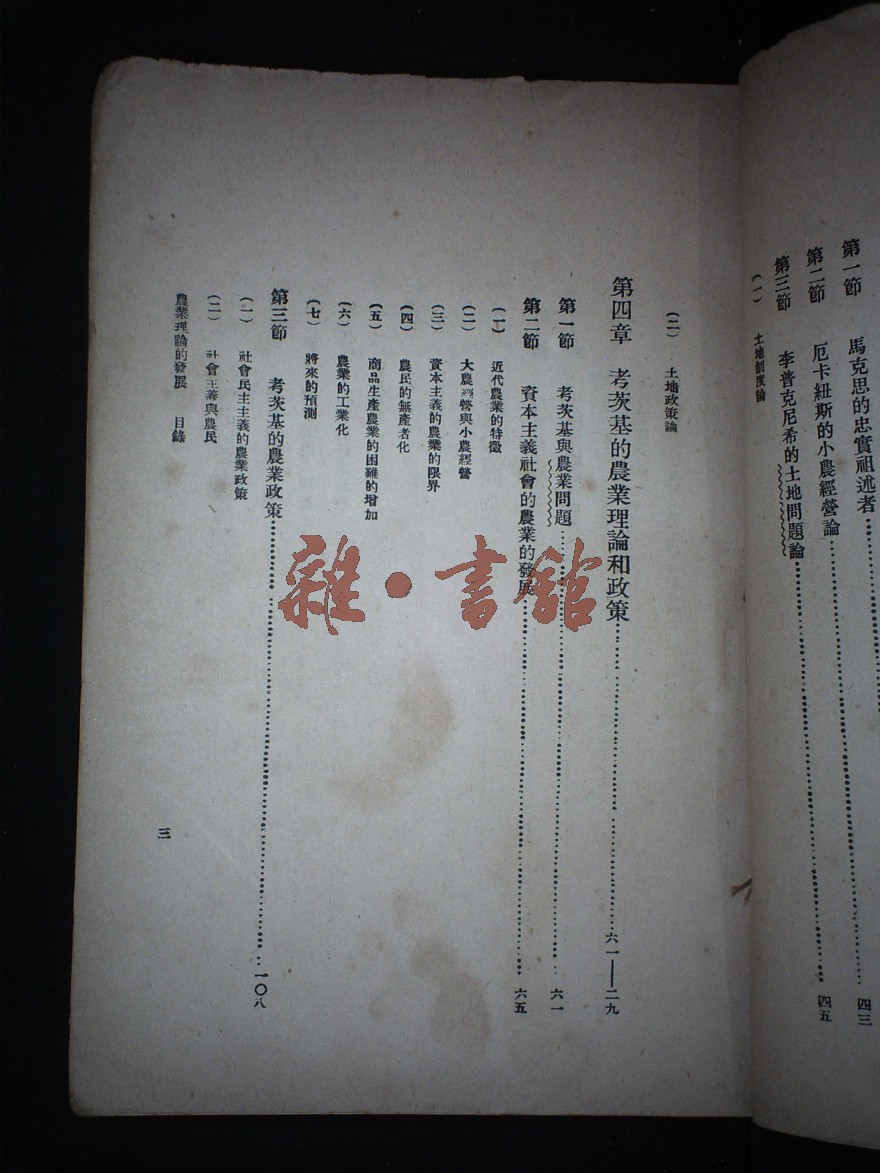 第一節　馬克思的忠實祖述者……四三
第二節　厄卡紐斯的小農經營論……四五
第三節　李普克尼希的土地問題論……
(一)　土地制度論
(二)　土地政策論
第四章　考茨基的農業理論和政策……六一——二九
第一節　考茨基與農業問題……六一
第二節　資本主義社會的農業的發展……六五
(一)　近代農業的特徵
(二)　大農經營與小農經營
(三)　資本主義的農業的限界
(四)　農民的無產者化
(五)　商品生產農業的困難的增加
(六)　農業的工業化
(七)　將來的預測
第三節　考茨基的農業政策……一〇八
(一)　社會民主主義的農業政策
(二)　社會主義與農民
農業理論的發展　目錄
三
雜·書館